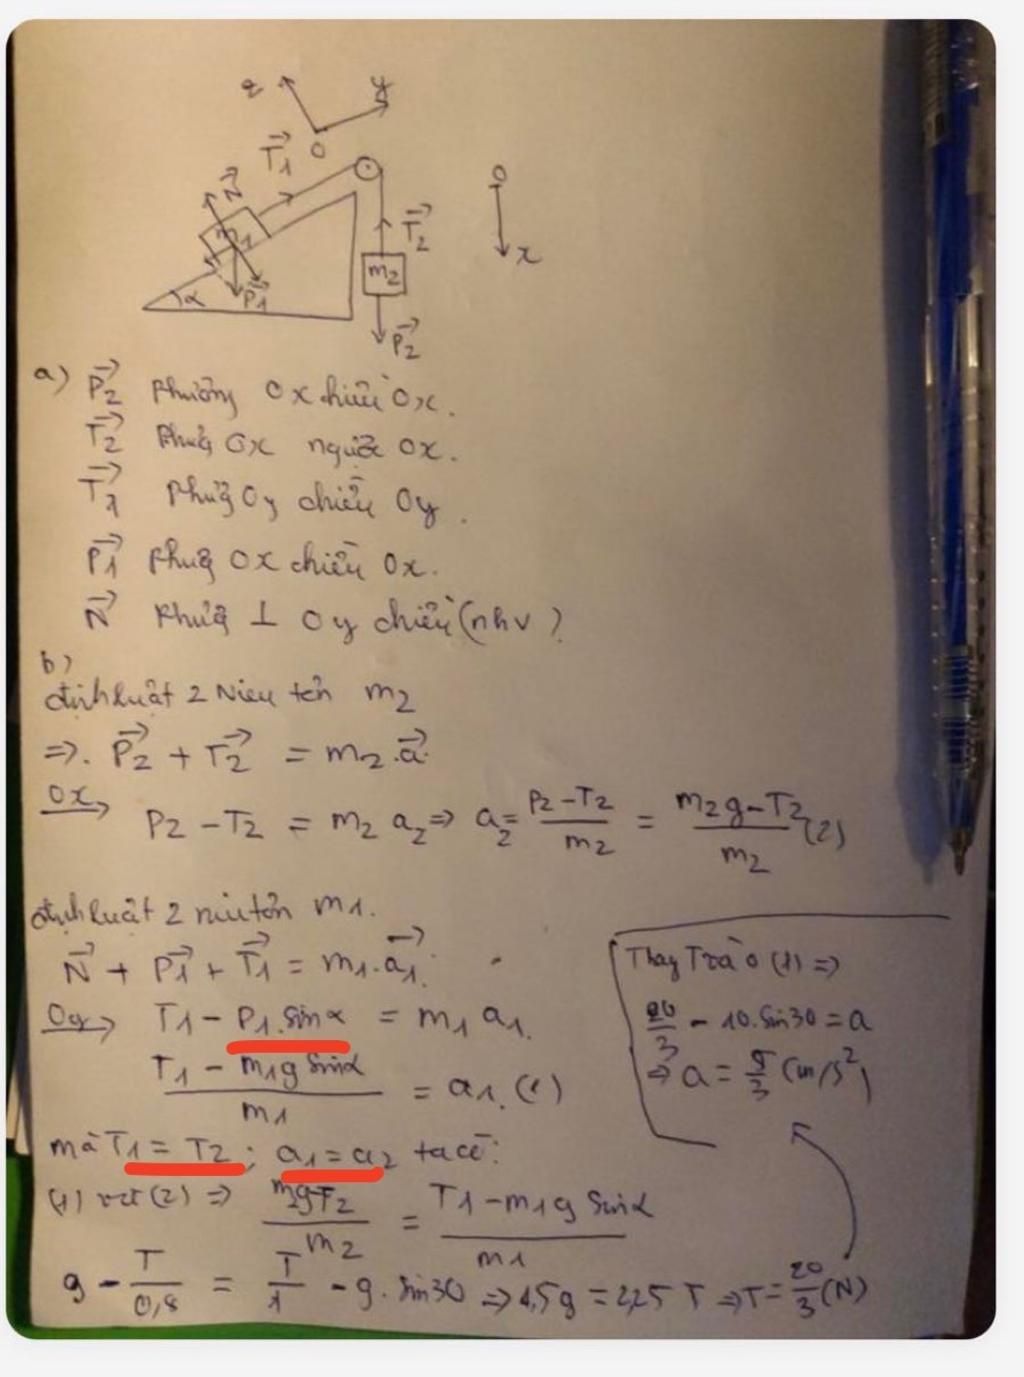 z y
T₁ O
N
m₁
T₂
O
x
m₂
α P₁
P₂
a) P₂ phương Ox chiều Ox.
T₂ phương Ox ngược Ox.
T₁ phương Oy chiều Oy.
P₁ phương Ox chiều Ox.
N phương ⊥ Oy chiều (nhv)
b)
định luật 2 Niu tơn m₂
=>. P₂ + T₂ = m₂.a
Ox→ P₂ - T₂ = m₂ a₂ => a₂ = (P₂ - T₂)/m₂ = (m₂g - T₂)/m₂ (2)
định luật 2 niu tơn m₁.
N + P₁ + T₁ = m₁.a₁
Oy→ T₁ - P₁.sinα = m₁ a₁.
(T₁ - m₁g sinα)/m₁ = a₁. (1)
mà T₁ = T₂ ; a₁ = a₂ ta có:
(1) và (2) => (m₂g-T₂)/m₂ = (T₁ - m₁g sinα)/m₁
g - T/0,8 = T/1 - g. sin30 => 1,5g = 2,25 T => T = 20/3 (N)
Thay T vào (1) =>
20/3 - 10.sin30 = a
=> a = 5/3 (m/s²)